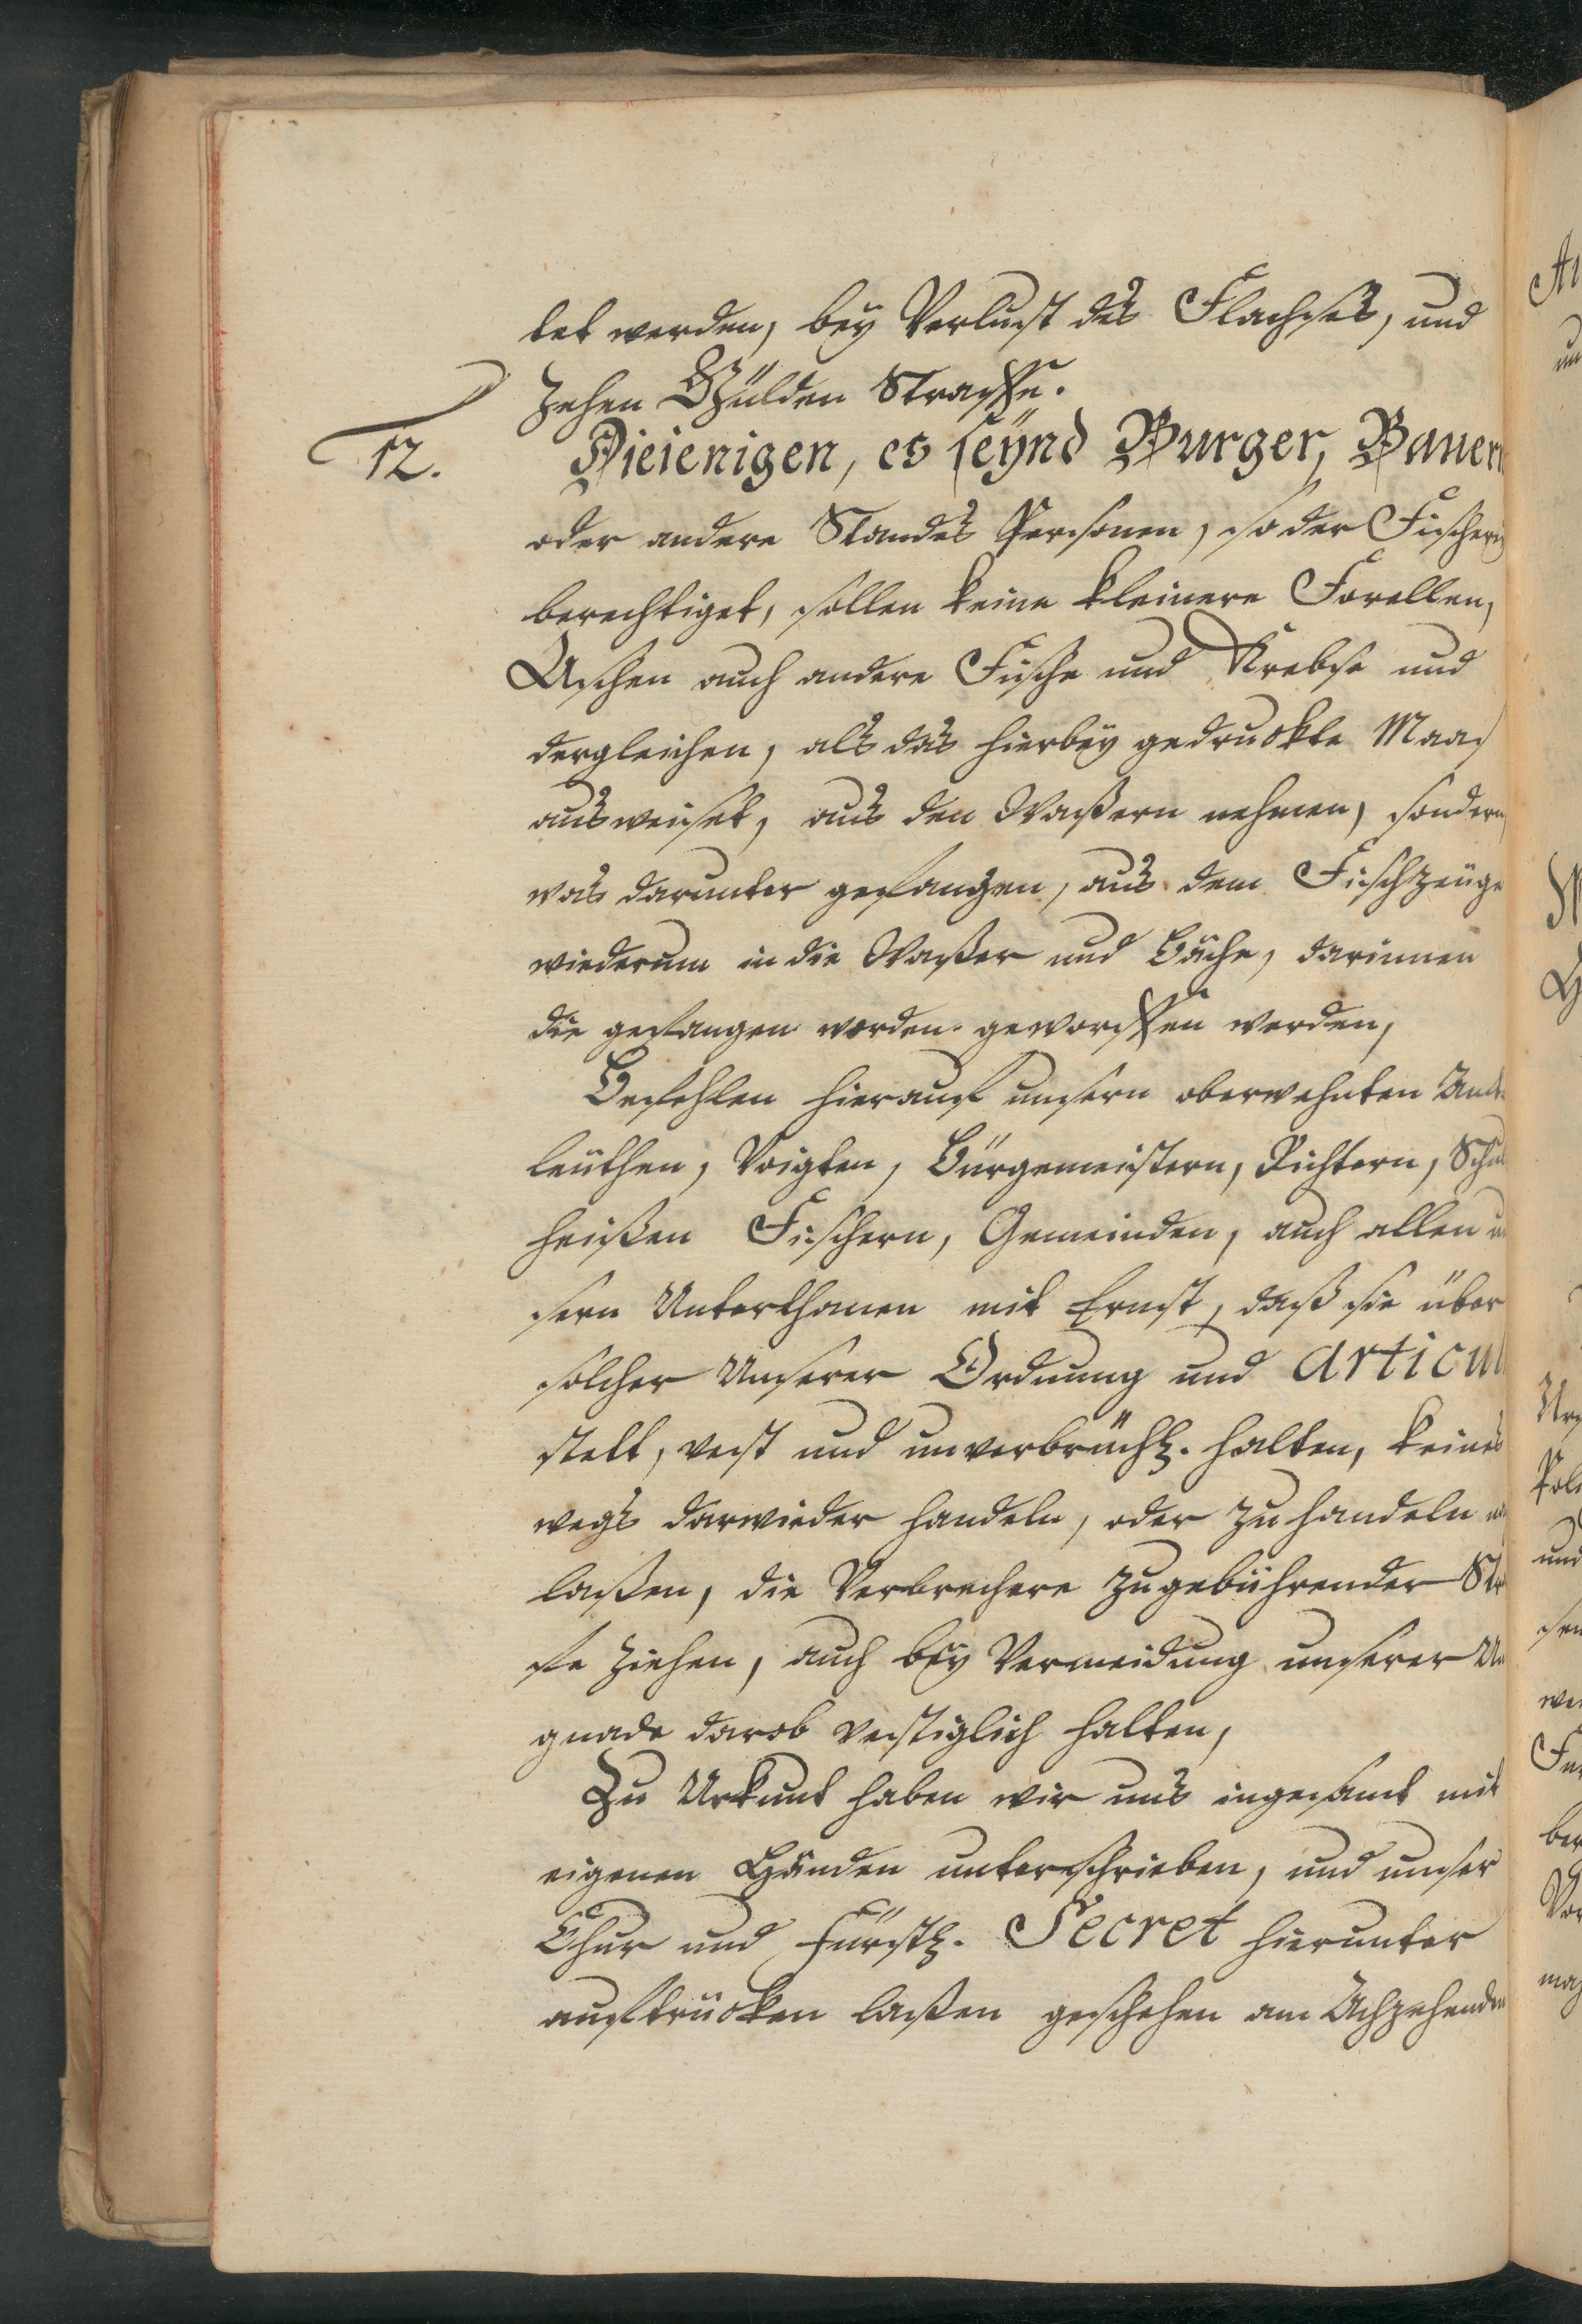 tet werden, bey Verlust des Flachses, und
zehen Gülden Straffe.
12. Dieienigen, es seÿnd Burger, Bauern
oder andere Standes Personen, so der Fischerey
berechtiget, sollen keine kleinere Forellen,
Aschen auch andere Fische und Krebse und
dergleichen, als das hierbey gedruckte Maas
ausweiset, aus den Waßern nehmen, sondern
was darunter gefangen, aus dem Fischzeüge
wiederum in die Waßer und Bäche, darinnen
die gefangen worden. geworffen werden,
Befehlen hierauf unsern oberwehnten Amt
leüthen, Voigten, Bürgemeistern, Richtern, Schul
heißen Fischern, Gemeinden, auch allen un
sern Unterthanen mit Ernst, daß sie über
solcher Unserer Ordnung und Articul
stett, vest und unverbrüchl. halten, keines
wegs darwieder handeln, oder zu handeln
laßen, die Verbrechere zu gebührender Stra
fe ziehen, auch bey Vermeidung unserer Un
gnade darob vestiglich halten,
Zu Urkunt haben wir uns ingesamt mit
eigenen Händen unterschrieben, und unser
Chur und Fürstl. Secret hierunter
auftrücken laßen geschehen am Achzehenden